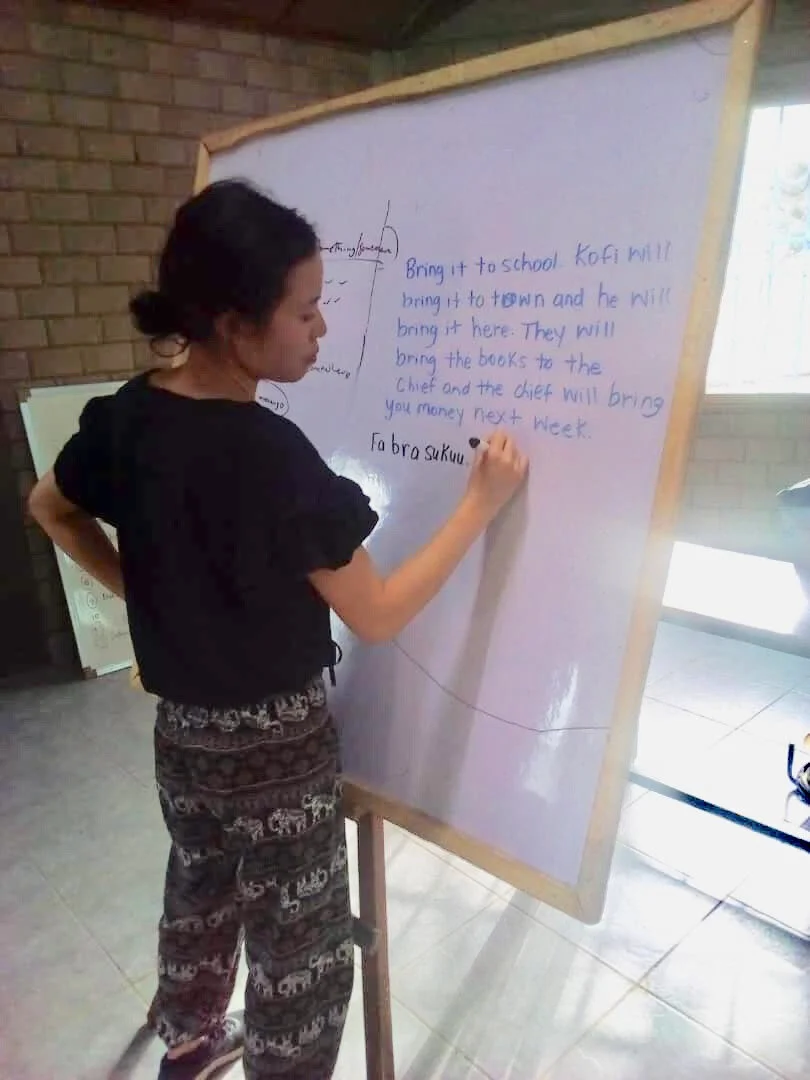 Bring it to school. Kofi will
bring it to town and he will
bring it here. They will
bring the books to the
Chief and the chief will bring
you money next week.
Fa bra sukuu.